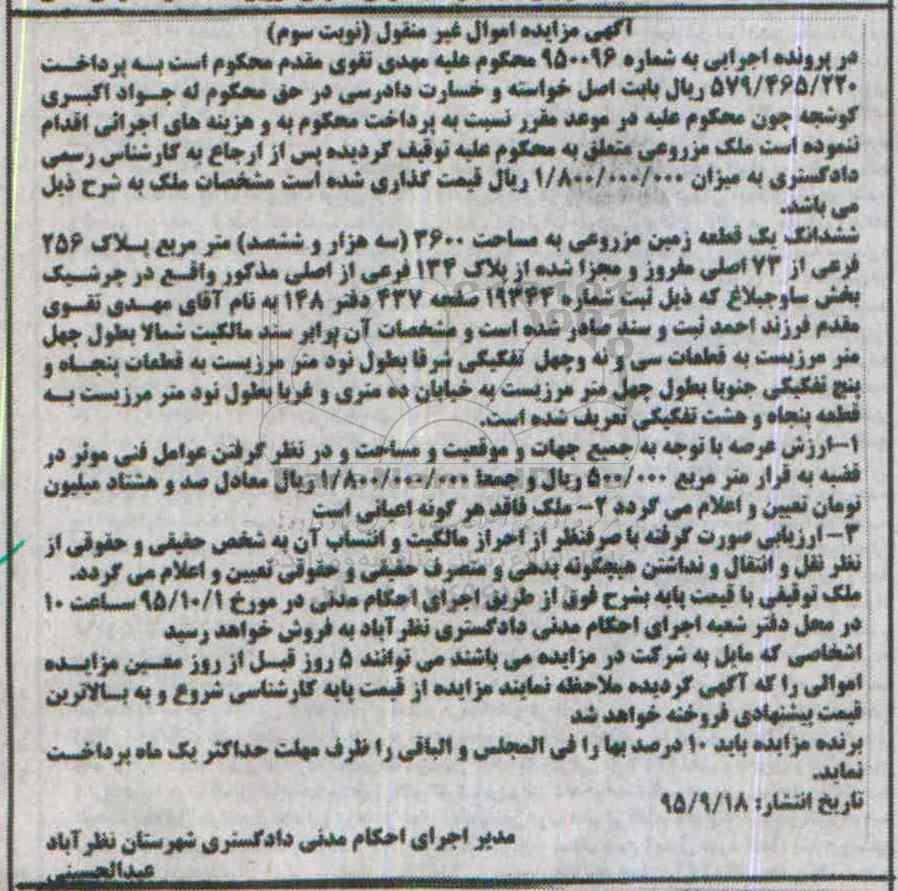 آگهی مزایده اموال غیر منقول (نوبت سوم)
در پرونده اجرایی به شماره ۹۵۰۰۹۶ محکوم علیه مهدی تقوی مقدم محکوم است به پرداخت
۵۷۹/۴۶۵/۲۲۰ ریال بابت اصل خواسته و خسارت دادرسی در حق محکوم له جواد اکبری
گوشچه چون محکوم علیه در موعد مقرر نسبت به پرداخت محکوم به و هزینه های اجرائی اقدام
ننموده است ملک مزروعی متعلق به محکوم علیه توقیف گردیده پس از ارجاع به کارشناس رسمی
دادگستری به میزان ۱/۸۰۰/۰۰۰/۰۰۰ ریال قیمت گذاری شده است مشخصات ملک به شرح ذیل
می باشد.
ششدانگ یک قطعه زمین مزروعی به مساحت ۳۶۰۰ (سه هزار و ششصد) متر مربع پلاک ۲۵۶
فرعی از ۷۳ اصلی مفروز و مجزا شده از پلاک ۱۳۴ فرعی از اصلی مذکور واقع در چرشیک
بخش ساوجبلاغ که ذیل ثبت شماره ۱۹۳۴۴ صفحه ۴۳۷ دفتر ۱۴۸ به نام آقای مهدی تقوی
مقدم فرزند احمد ثبت و سند صادر شده است و مشخصات آن برابر سند مالکیت شمالا بطول چهل
متر مرزیست به قطعات سی و نه وچهل تفکیکی شرقا بطول نود متر مرزیست به قطعات پنجاه و
پنج تفکیکی جنوبا بطول چهل متر مرزیست به خیابان ده متری و غربا بطول نود متر مرزیست به
قطعه پنجاه و هشت تفکیکی تعریف شده است.
۱-ارزش عرصه با توجه به جمیع جهات و موقعیت و مساحت و در نظر گرفتن عوامل فنی موثر در
قضیه به قرار متر مربع ۵۰۰/۰۰۰ ریال و جمعا ۱/۸۰۰/۰۰۰/۰۰۰ ریال معادل صد و هشتاد میلیون
تومان تعیین و اعلام می گردد ۲- ملک فاقد هر گونه اعیانی است
۳- ارزیابی صورت گرفته با صرفنظر از احراز مالکیت و انتساب آن به شخص حقیقی و حقوقی از
نظر نقل و انتقال و نداشتن هیچگونه بدهی و متصرف حقیقی و حقوقی تعیین و اعلام می گردد.
ملک توقیفی با قیمت پایه بشرح فوق از طریق اجرای احکام مدنی در مورخ ۹۵/۱۰/۱ ساعت ۱۰
در محل دفتر شعبه اجرای احکام مدنی دادگستری نظر آباد به فروش خواهد رسید
اشخاصی که مایل به شرکت در مزایده می باشند می توانند ۵ روز قبل از روز معین مزایده
اموالی را که آگهی گردیده ملاحظه نمایند مزایده از قیمت پایه کارشناسی شروع و به بالاترین
قیمت پیشنهادی فروخته خواهد شد
برنده مزایده باید ۱۰ درصد بها را فی المجلس و الباقی را ظرف مهلت حداکثر یک ماه پرداخت
نماید.
تاریخ انتشار: ۹۵/۹/۱۸
مدیر اجرای احکام مدنی دادگستری شهرستان نظر آباد
عبدالحسینی